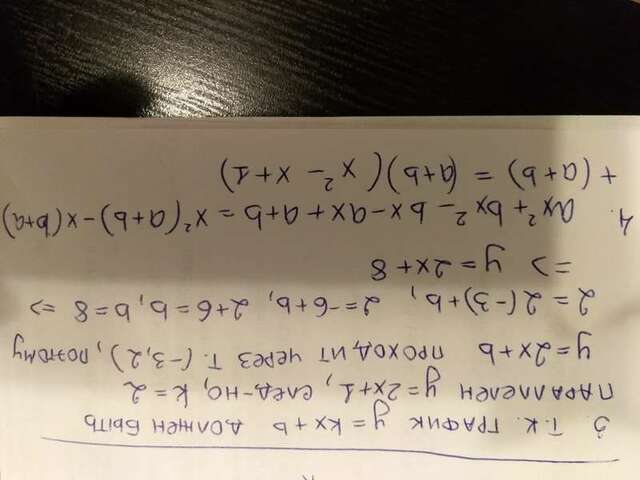 3. Т.К. ГРАФИК y = kx + b ДОЛЖЕН БЫТЬ
ПАРАЛЛЕЛЕН y = 2x+1, СЛЕД-НО, k = 2
y = 2x + b ПРОХОДИТ ЧЕРЕЗ Т. (-3,2), ПОЭТОМУ
2 = 2(-3)+b, 2=-6+b, 2+6=b, b=8 =>
=> y = 2x+8
4. ax²+bx²-bx-ax+a+b = x²(a+b)-x(b+a)
+(a+b) = (a+b)(x²-x+1)